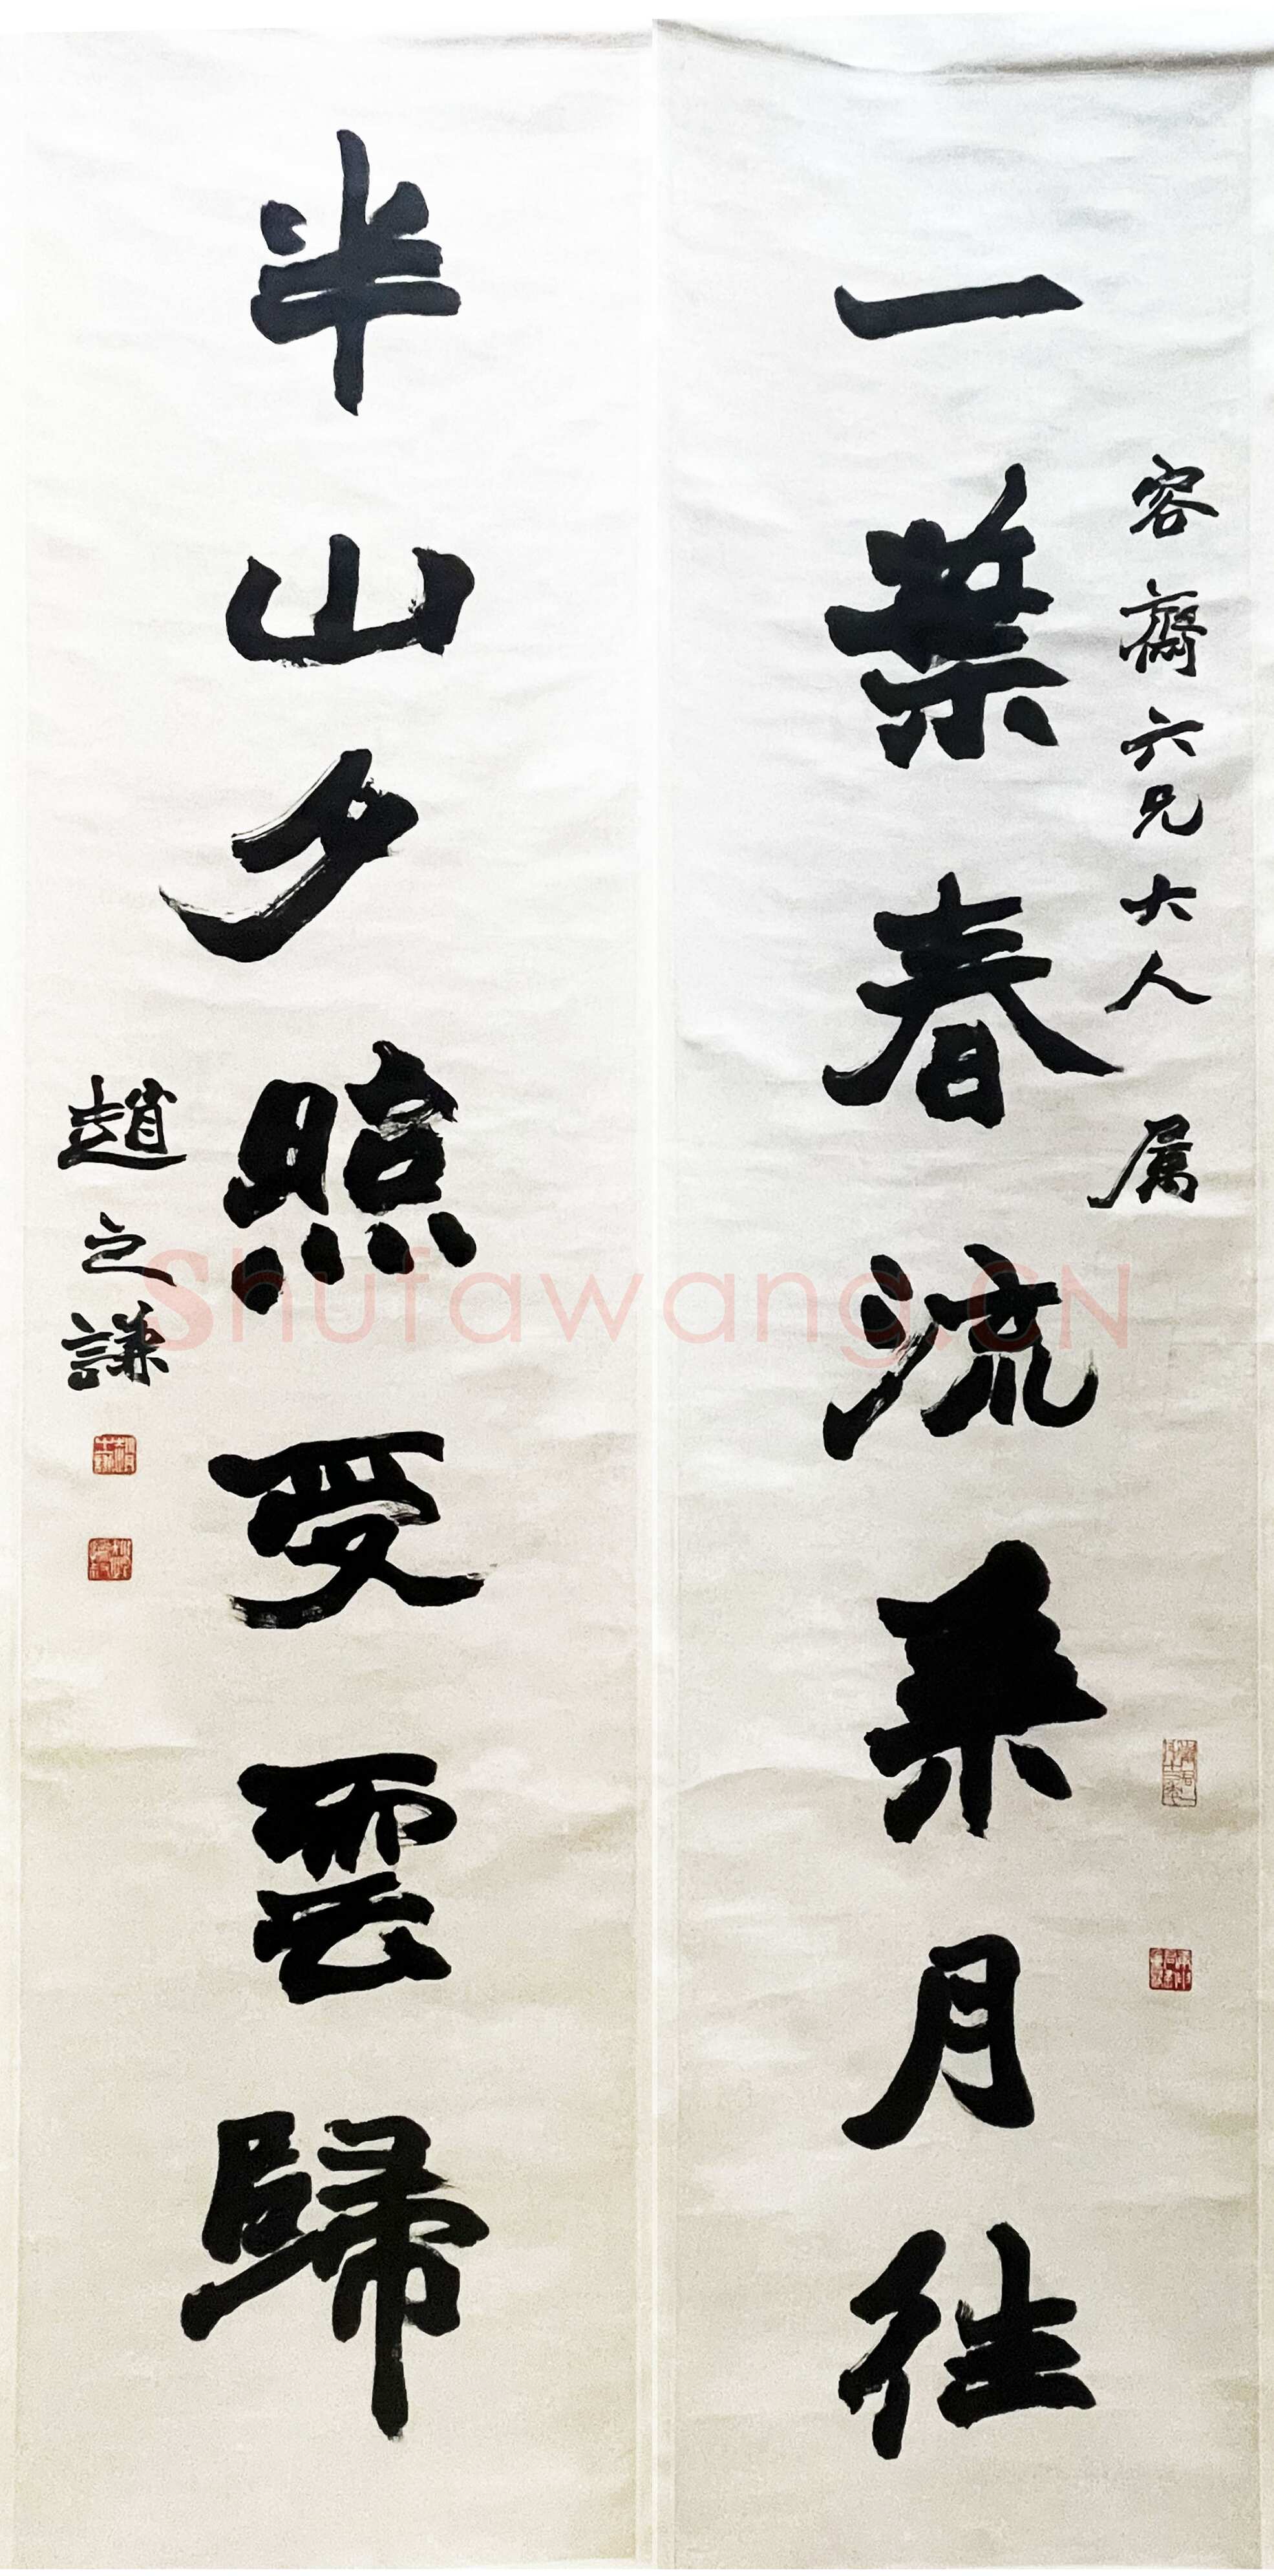 容齋六兄大人属
一葉春流乘月往
半山夕照受雲歸
趙之謙
Shufawang.CN